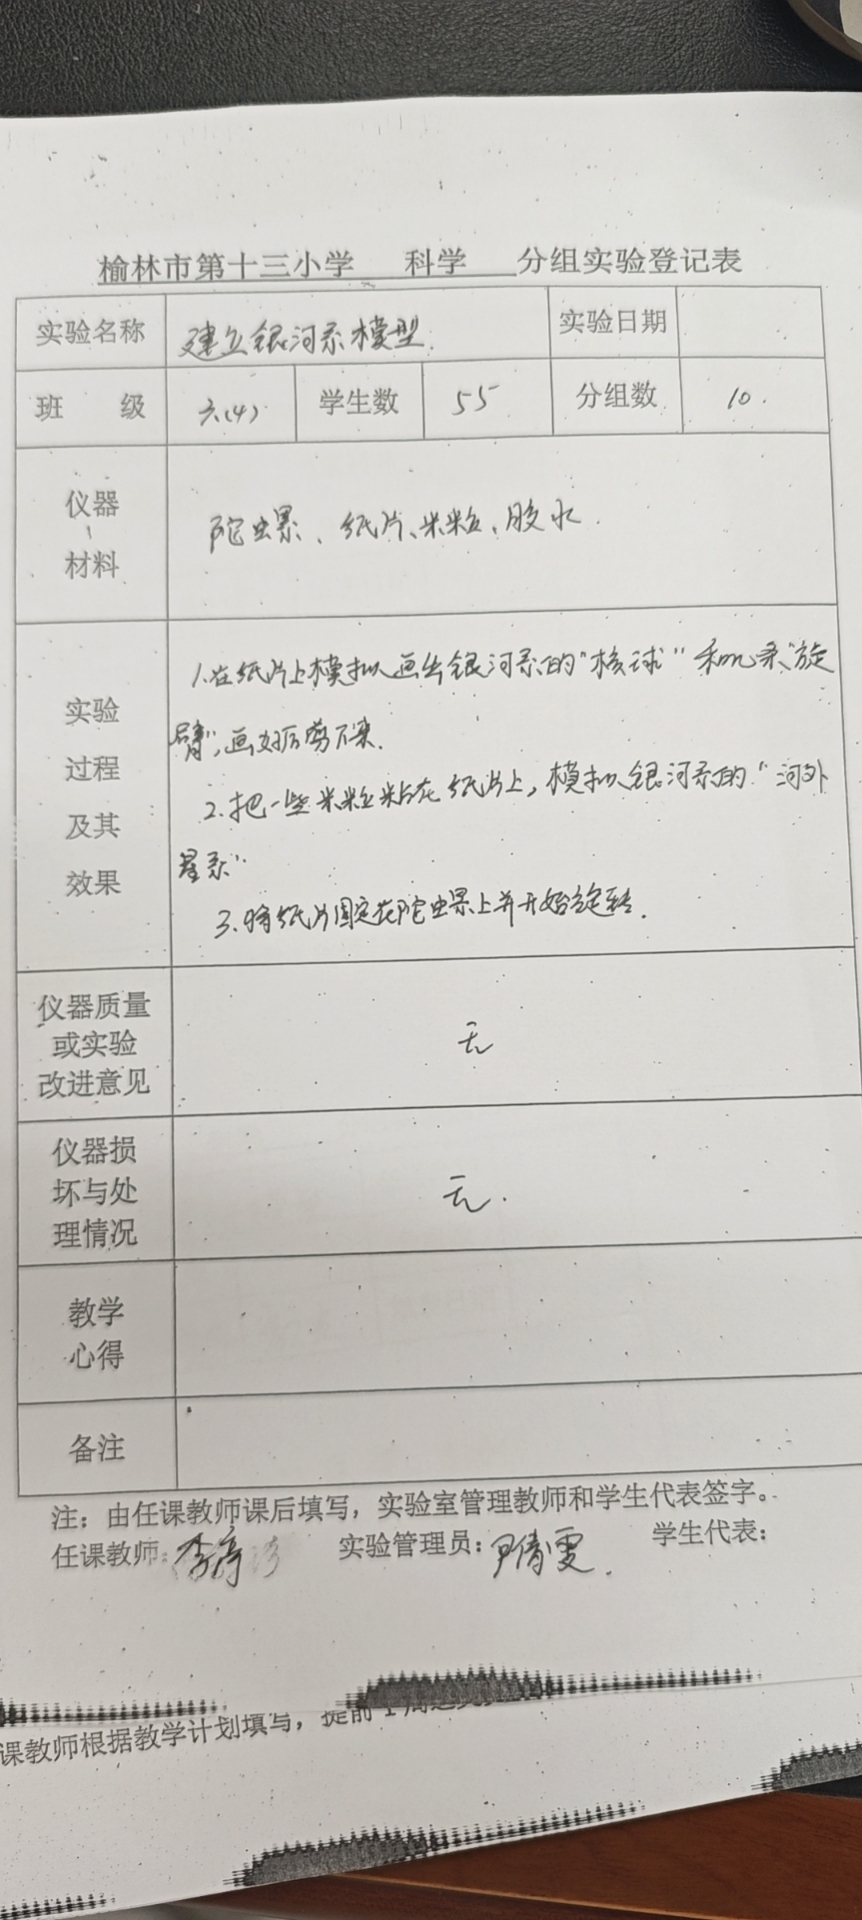 榆林市第十三小学 科学 分组实验登记表
实验名称 建立银河系模型. 实验日期
班 级 六(4) 学生数 55 分组数 10.
仪器
材料
陀螺、纸片、米粒、胶水.
实验
过程
及其
效果
1.在纸片上模拟画出银河系的"核球"和几条"旋
臂",画好后剪下来.
2.把一些米粒粘在纸片上,模拟银河系的"河外
星系"
3.将纸片固定在陀螺上并开始旋转.
仪器质量
或实验
改进意见
无
仪器损
坏与处
理情况
无.
教学
心得
备注
注：由任课教师课后填写，实验室管理教师和学生代表签字。
任课教师: 李 实验管理员: 学生代表:
课教师根据教学计划填写，提前1周